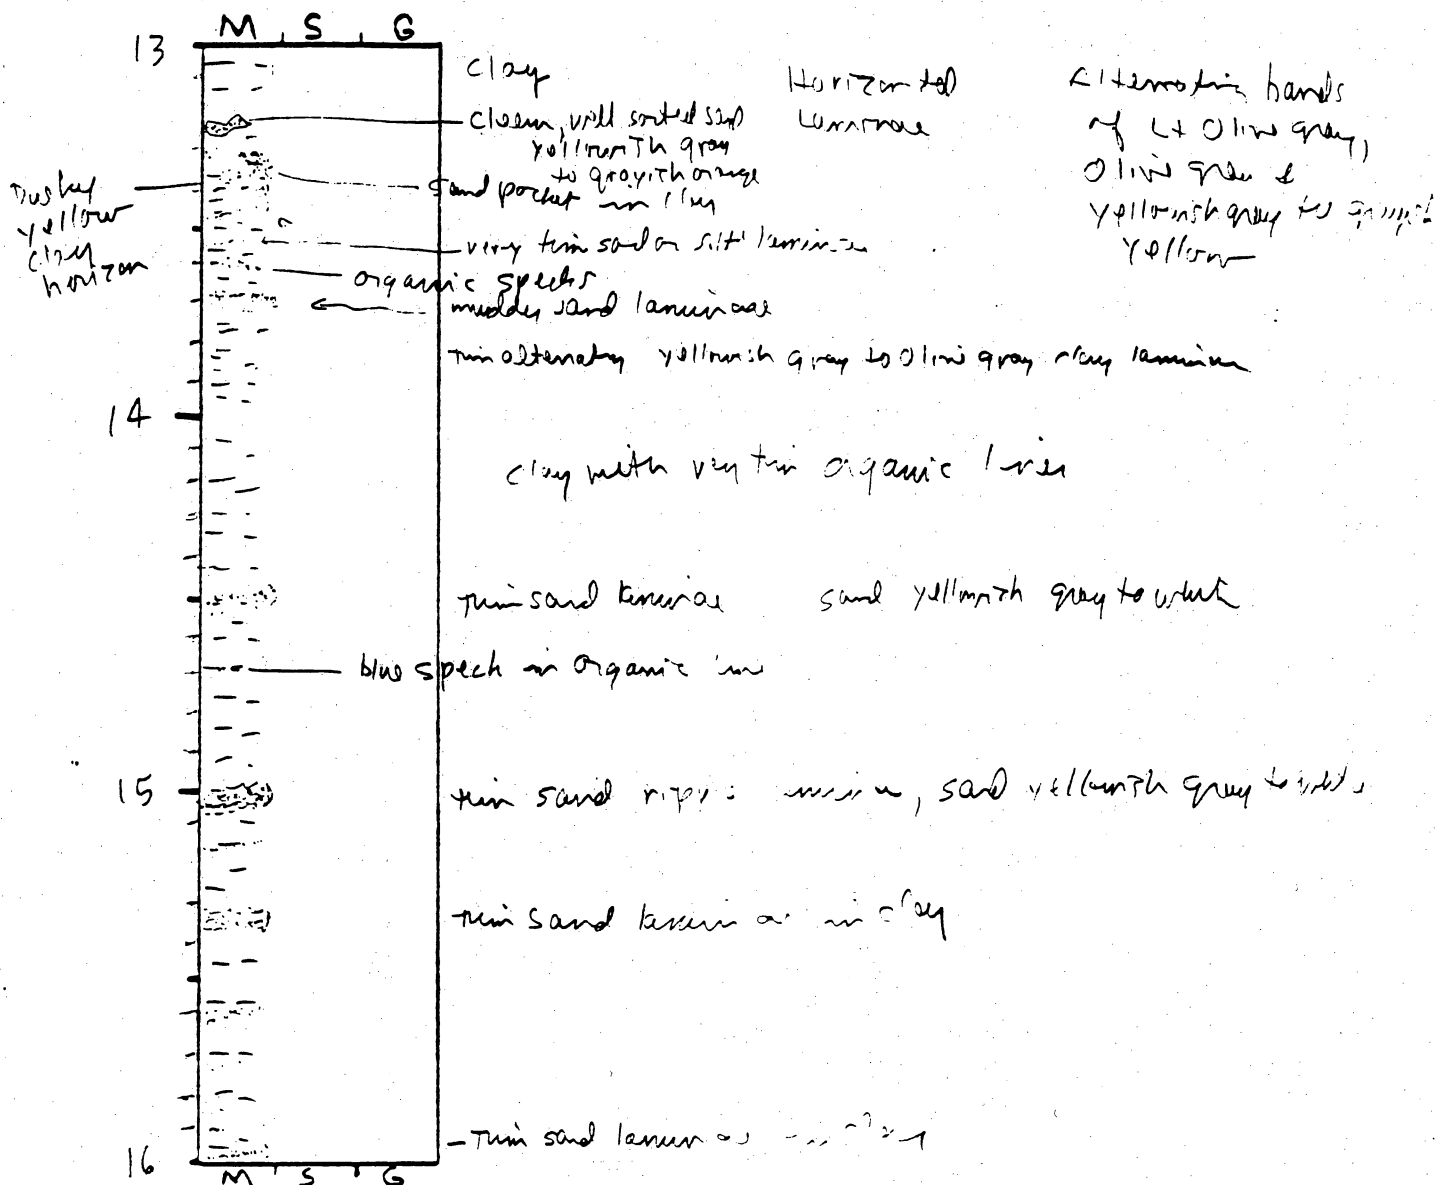 M S G
13
clay
Horizontal
laminae
Alternating bands
of Lt Olive gray,
Olive gray &
yellowish gray to grayish
yellow
clean, well sorted sand
yellowish gray
to grayish orange
Dusky
yellow
clay
horizon
sand pocket in clay
very thin sand or silt laminae
organic specks
muddy sand laminae
thin alternating yellowish gray to Olive gray clay laminae
14
clay with very thin organic lines
thin sand laminae sand yellowish gray to white
blue speck in organic
15
thin sand laminae, sand yellowish gray to white
thin sand laminae in clay
- thin sand laminae in clay
16
M S G